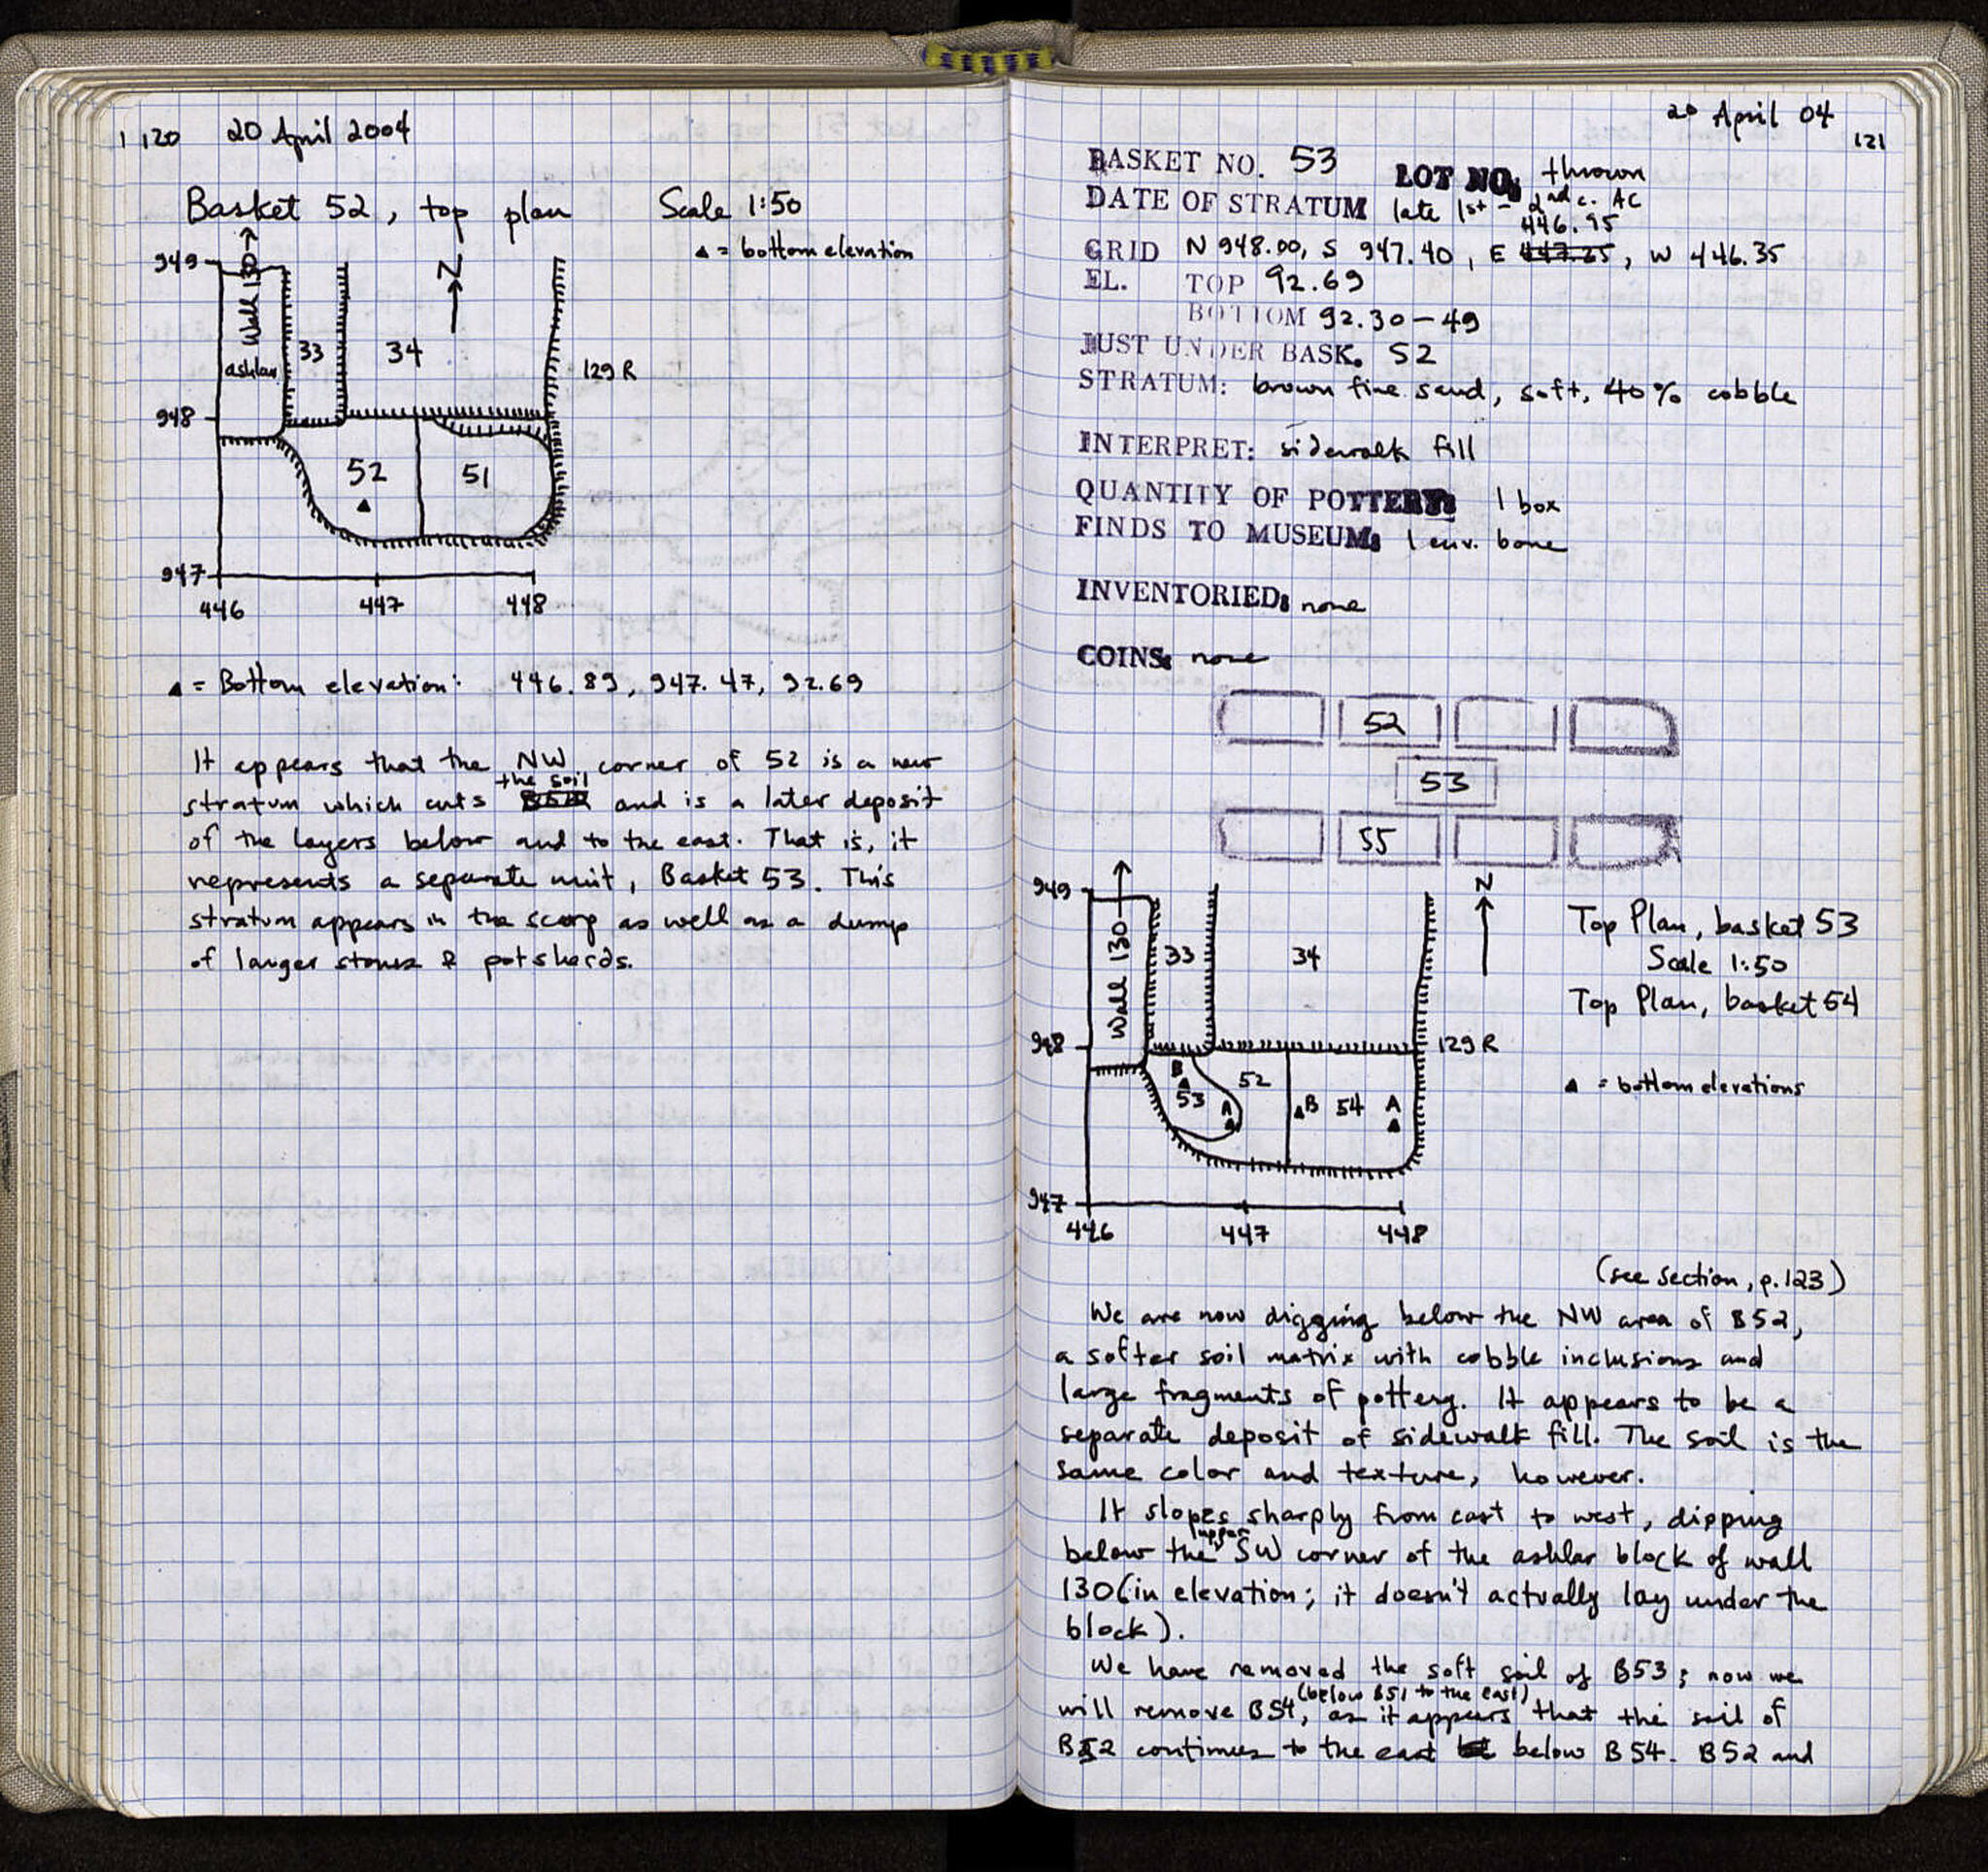 120 20 April 2004
Basket 52, top plan Scale 1:50
▲ = bottom elevation
949
Wall 130
N
ashlar
33
34
129 R
948
52
51
947
446 447 448
▲ = Bottom elevation: 446.89, 947.47, 92.69
It appears that the NW corner of 52 is a new
the soil
stratum which cuts and is a later deposit
of the layers below and to the east. That is, it
represents a separate unit, Basket 53. This
stratum appears in the scarp as well as a dump
of larger stones & potsherds.
20 April 04
121
BASKET NO. 53 LOT NO. thrown
DATE OF STRATUM late 1st - 2nd c. AC
446.95
GRID N 948.00, S 947.40, E 447.25, W 446.35
EL. TOP 92.69
BOTTOM 92.30-49
JUST UNDER BASK. 52
STRATUM: brown fine sand, soft, 40% cobble
INTERPRET: sidewalk fill
QUANTITY OF POTTERY: 1 box
FINDS TO MUSEUM: 1 env. bone
INVENTORIED: none
COINS: none
52
53
55
949
Wall 130
33
34
N
Top Plan, basket 53
Scale 1:50
Top Plan, basket 54
948
129 R
▲ = bottom elevations
B
53
A
52
B 54 A
947
446 447 448
(see section, p. 123)
We are now digging below the NW area of B52,
a softer soil matrix with cobble inclusions and
large fragments of pottery. It appears to be a
separate deposit of sidewalk fill. The soil is the
same color and texture, however.
It slopes sharply from east to west, dipping
upper
below the SW corner of the ashlar block of wall
130 (in elevation; it doesn't actually lay under the
block).
We have removed the soft soil of B53; now we
(below B51 to the east)
will remove B54, as it appears that the soil of
B52 continues to the east below B54. B52 and